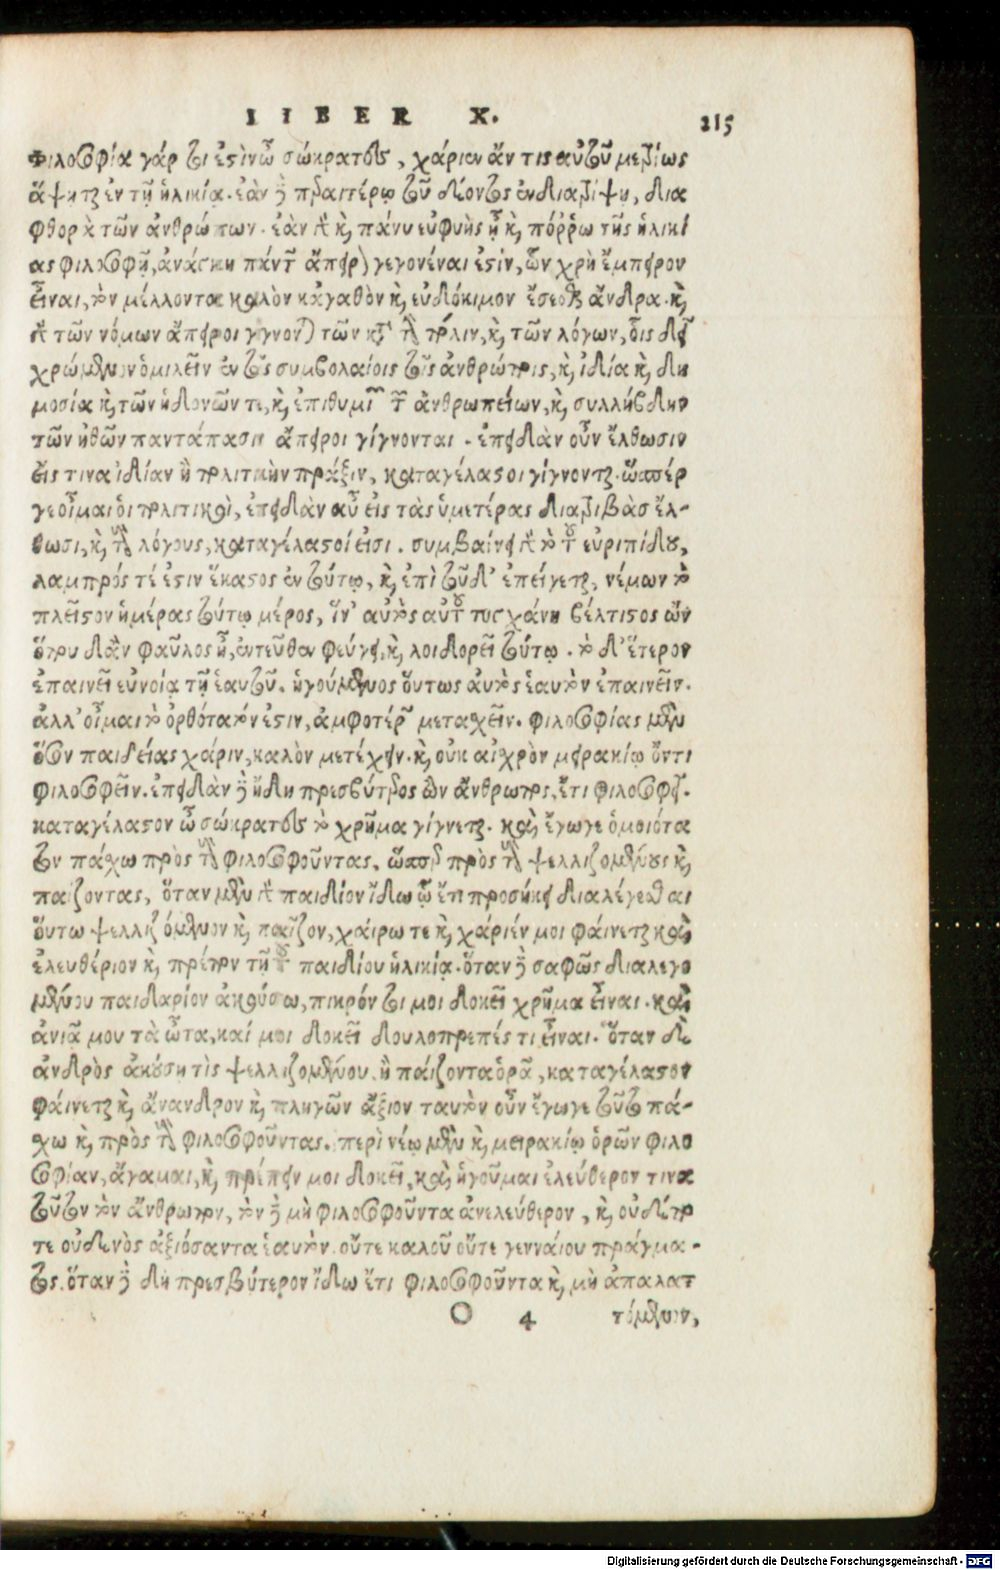 LIBER X. 215
φιλοσοφία γάρ τοι ἐστὶν ὦ σώκρατες, χάριεν ἄν τις αὐτοῦ μετρίως
ἅψηται ἐν τῇ ἡλικίᾳ. ἐὰν δὲ περαιτέρω τοῦ δέοντος ἐνδιατρίψῃ, δια
φθορὰ τῶν ἀνθρώπων. ἐὰν γὰρ καὶ πάνυ εὐφυὴς ᾖ καὶ πόρρω τῆς ἡλικί
ας φιλοσοφῇ, ἀνάγκη πάντων ἄπειρον γεγονέναι ἐστίν, ὧν χρὴ ἔμπειρον
εἶναι, τὸν μέλλοντα καλὸν κἀγαθὸν καὶ εὐδόκιμον ἔσεσθαι ἄνδρα. καὶ
γὰρ τῶν νόμων ἄπειροι γίγνονται τῶν κατὰ τὴν πόλιν, καὶ τῶν λόγων, οἷς δεῖ
χρώμενον ὁμιλεῖν ἐν τοῖς συμβολαίοις τοῖς ἀνθρώποις, καὶ ἰδίᾳ καὶ δη
μοσίᾳ καὶ τῶν ἡδονῶν τε, καὶ ἐπιθυμιῶν τῶν ἀνθρωπείων, καὶ συλλήβδην
τῶν ἠθῶν παντάπασιν ἄπειροι γίγνονται. ἐπειδὰν οὖν ἔλθωσιν
εἴς τινα ἰδίαν ἢ πολιτικὴν πρᾶξιν, καταγέλαστοι γίγνονται. ὥσπερ
γε οἶμαι οἱ πολιτικοὶ, ἐπειδὰν αὖ εἰς τὰς ὑμετέρας διατριβὰς ἔλ-
θωσι, καὶ τοὺς λόγους, καταγέλαστοί εἰσι. συμβαίνει γὰρ τὸ τοῦ εὐριπίδου,
λαμπρός τέ ἐστιν ἕκαστος ἐν τούτῳ, καὶ ἐπὶ τοῦδ' ἐπείγεται, νέμων τὸ
πλεῖστον ἡμέρας τούτῳ μέρος, ἵν' αὐτὸς αὑτοῦ τυγχάνη βέλτιστος ὤν
ὅπου δ' ἂν φαῦλος ᾖ, ἐντεῦθεν φεύγει, καὶ λοιδορεῖ τούτῳ. τὸ δ' ἕτερον
ἐπαινεῖ εὐνοίᾳ τῇ ἑαυτοῦ. ἡγούμενος οὕτως αὐτὸς ἑαυτὸν ἐπαινεῖν.
ἀλλ' οἶμαι τὸ ὀρθότατόν ἐστιν, ἀμφοτέρων μετασχεῖν. φιλοσοφίας μὲν
ὅσον παιδείας χάριν, καλὸν μετέχειν. καὶ οὐκ αἰσχρὸν μειρακίῳ ὄντι
φιλοσοφεῖν. ἐπειδὰν δὲ ἤδη πρεσβύτερος ὢν ἄνθρωπος, ἔτι φιλοσοφῇ.
καταγέλαστον ὦ σώκρατες τὸ χρῆμα γίγνεται. καὶ ἔγωγε ὁμοιότα
τον πάσχω πρὸς τοὺς φιλοσοφοῦντας, ὥσπερ πρὸς τοὺς ψελλιζομένους καὶ
παίζοντας, ὅταν μὲν γὰρ παιδίον ἴδω ᾧ ἔτι προσήκει διαλέγεσθαι
οὕτω ψελλιζόμενον καὶ παῖζον, χαίρω τε καὶ χάριέν μοι φαίνεται καὶ
ἐλευθέριον καὶ πρέπον τῇ τοῦ παιδίου ἡλικίᾳ. ὅταν δὲ σαφῶς διαλεγο
μένου παιδαρίου ἀκούσω, πικρόν τί μοι δοκεῖ χρῆμα εἶναι. καὶ
ἀνιᾷ μου τὰ ὦτα, καί μοι δοκεῖ δουλοπρεπές τι εἶναι. ὅταν δὲ
ἀνδρὸς ἀκούσῃ τὶς ψελλιζομένου. ἢ παίζοντα ὁρᾷ, καταγέλαστον
φαίνεται καὶ ἄνανδρον καὶ πληγῶν ἄξιον ταυτὸν οὖν ἔγωγε τοῦτο πά-
σχω καὶ πρὸς τοὺς φιλοσοφοῦντας. περὶ νέῳ μὲν καὶ μειρακίῳ ὁρῶν φιλο
σοφίαν, ἄγαμαι, καὶ πρέπειν μοι δοκεῖ, καὶ ἡγοῦμαι ἐλεύθερον τινα
τοῦτον τὸν ἄνθρωπον, τὸν δὲ μὴ φιλοσοφοῦντα ἀνελεύθερον, καὶ οὐδέπο
τε οὐδενὸς ἀξιόσαντα ἑαυτὸν. οὔτε καλοῦ οὔτε γενναίου πράγμα-
τος. ὅταν δὲ δὴ πρεσβύτερον ἴδω ἔτι φιλοσοφοῦντα καὶ μὴ ἀπαλατ
O 4 τόμενον,
Digitalisierung gefördert durch die Deutsche Forschungsgemeinschaft - DFG